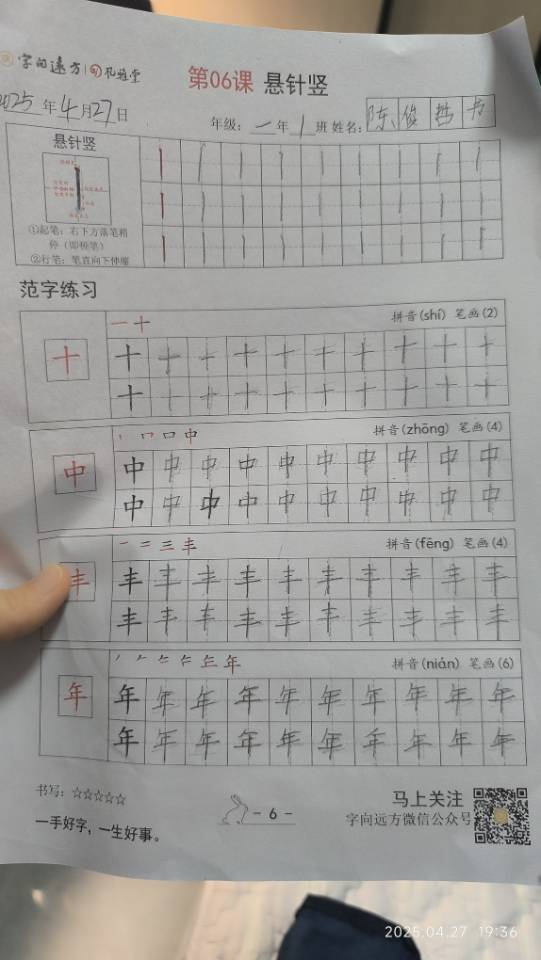 字向远方|孔雀堂
第06课 悬针竖
2025年4月27日
年级:一年1班 姓名:陈俊哲
悬针竖
①起笔:右下方落笔稍
停(即顿笔)
②行笔:笔直向下伸缩
范字练习
一十
拼音(shí) 笔画(2)
十 十 十 十 十 十 十 十 十 十 十
十 十 十 十 十 十 十 十 十 十
中
拼音(zhōng) 笔画(4)
中 中 中 中 中 中 中 中 中 中 中
中 中 中 中 中 中 中 中 中 中
一 二 三 丰
拼音(fēng) 笔画(4)
丰 丰 丰 丰 丰 丰 丰 丰 丰 丰 丰
丰 丰 丰 丰 丰 丰 丰 丰 丰 丰
年
拼音(nián) 笔画(6)
年 年 年 年 年 年 年 年 年 年 年
年 年 年 年 年 年 年 年 年 年
书写:☆☆☆☆☆
一手好字,一生好事。
- 6 -
马上关注
字向远方微信公众号
2025.04.27 19:36